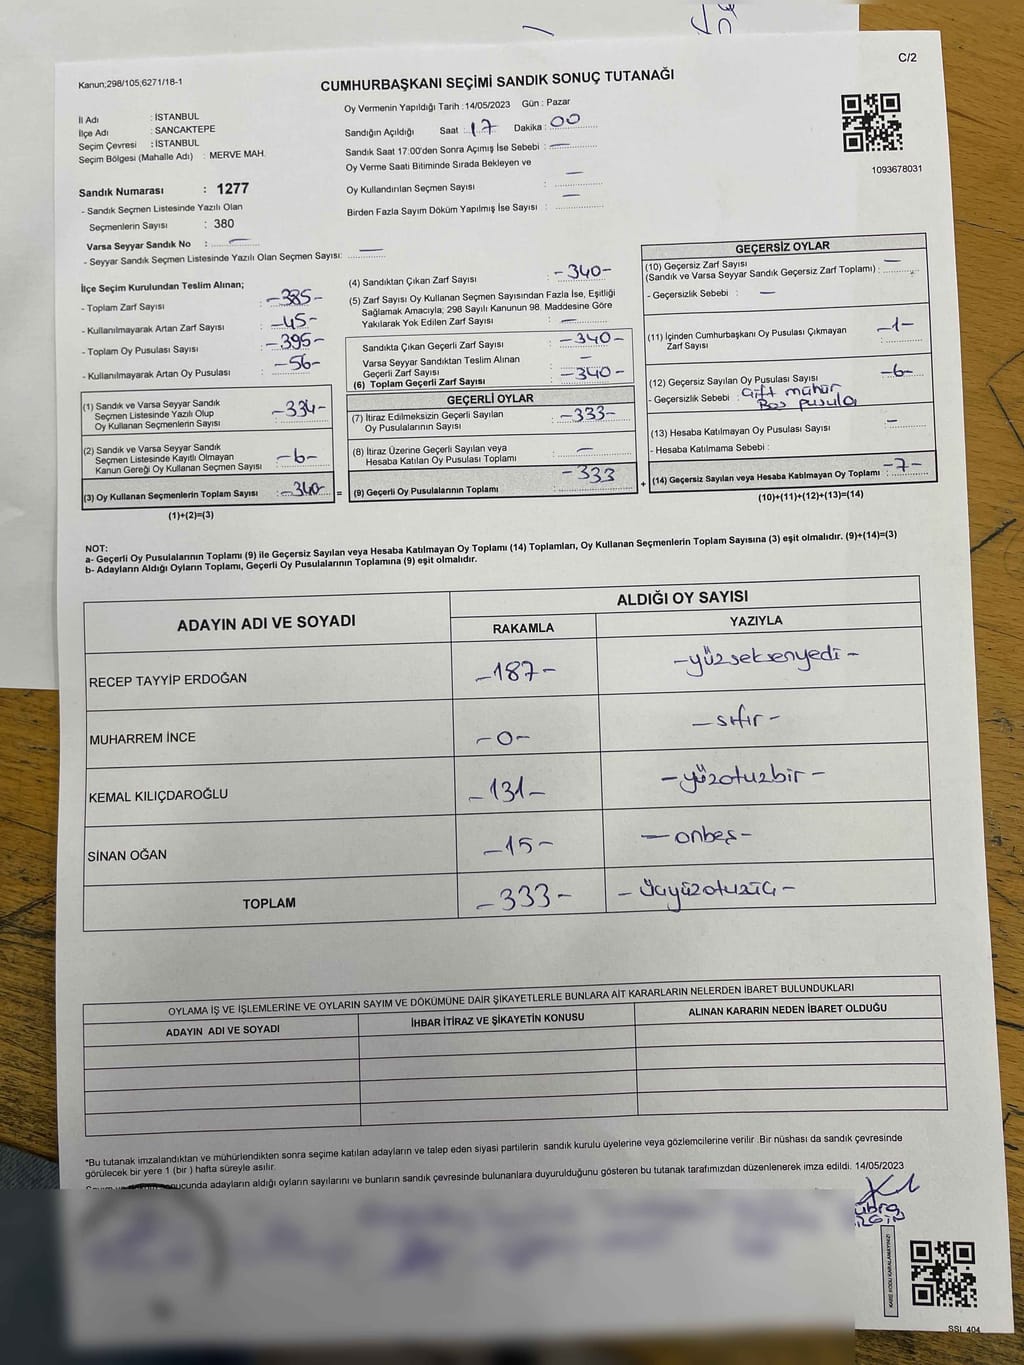 C/2
Kanun;298/105;6271/18-1
CUMHURBAŞKANI SEÇİMİ SANDIK SONUÇ TUTANAĞI
İl Adı : İSTANBUL
İlçe Adı : SANCAKTEPE
Seçim Çevresi : İSTANBUL
Seçim Bölgesi (Mahalle Adı) : MERVE MAH.
Oy Vermenin Yapıldığı Tarih : 14/05/2023 Gün : Pazar
Sandığın Açıldığı Saat : 17 Dakika : 00
Sandık Saat 17:00'den Sonra Açımış İse Sebebi : —
Oy Verme Saati Bitiminde Sırada Bekleyen ve
Oy Kullandırılan Seçmen Sayısı : —
Birden Fazla Sayım Döküm Yapılmış İse Sayısı : —
1093678031
Sandık Numarası : 1277
- Sandık Seçmen Listesinde Yazılı Olan
Seçmenlerin Sayısı : 380
Varsa Seyyar Sandık No : —
- Seyyar Sandık Seçmen Listesinde Yazılı Olan Seçmen Sayısı: —
İlçe Seçim Kurulundan Teslim Alınan;
- Toplam Zarf Sayısı : -385-
- Kullanılmayarak Artan Zarf Sayısı : -45-
- Toplam Oy Pusulası Sayısı : -395-
- Kullanılmayarak Artan Oy Pusulası : -56-
(1) Sandık ve Varsa Seyyar Sandık
Seçmen Listesinde Yazılı Olup
Oy Kullanan Seçmenlerin Sayısı : -334-
(2) Sandık ve Varsa Seyyar Sandık
Seçmen Listesinde Kayıtlı Olmayan
Kanun Gereği Oy Kullanan Seçmen Sayısı : -6-
(3) Oy Kullanan Seçmenlerin Toplam Sayısı : -340-
(1)+(2)=(3)
(4) Sandıktan Çıkan Zarf Sayısı : -340-
(5) Zarf Sayısı Oy Kullanan Seçmen Sayısından Fazla İse, Eşitliği
Sağlamak Amacıyla; 298 Sayılı Kanunun 98. Maddesine Göre
Yakılarak Yok Edilen Zarf Sayısı : —
Sandıkta Çıkan Geçerli Zarf Sayısı : -340-
Varsa Seyyar Sandıktan Teslim Alınan
Geçerli Zarf Sayısı : —
(6) Toplam Geçerli Zarf Sayısı : -340-
GEÇERLİ OYLAR
(7) İtiraz Edilmeksizin Geçerli Sayılan
Oy Pusulalarının Sayısı : -333-
(8) İtiraz Üzerine Geçerli Sayılan veya
Hesaba Katılan Oy Pusulası Toplamı : —
= (9) Geçerli Oy Pusulalarının Toplamı : -333
GEÇERSİZ OYLAR
(10) Geçersiz Zarf Sayısı
(Sandık ve Varsa Seyyar Sandık Geçersiz Zarf Toplamı) : —
- Geçersizlik Sebebi : —
(11) İçinden Cumhurbaşkanı Oy Pusulası Çıkmayan
Zarf Sayısı : -1-
(12) Geçersiz Sayılan Oy Pusulası Sayısı : -6-
- Geçersizlik Sebebi : Çift mühür
Boş pusula
(13) Hesaba Katılmayan Oy Pusulası Sayısı : -
- Hesaba Katılmama Sebebi :
+ (14) Geçersiz Sayılan veya Hesaba Katılmayan Oy Toplamı : -7-
(10)+(11)+(12)+(13)=(14)
NOT:
a- Geçerli Oy Pusulalarının Toplamı (9) ile Geçersiz Sayılan veya Hesaba Katılmayan Oy Toplamı (14) Toplamları, Oy Kullanan Seçmenlerin Toplam Sayısına (3) eşit olmalıdır. (9)+(14)=(3)
b- Adayların Aldığı Oyların Toplamı, Geçerli Oy Pusulalarının Toplamına (9) eşit olmalıdır.
ADAYIN ADI VE SOYADI ALDIĞI OY SAYISI
RAKAMLA YAZIYLA
RECEP TAYYİP ERDOĞAN -187- -yüzseksenyedi-
MUHARREM İNCE -0- -sıfır-
KEMAL KILIÇDAROĞLU -131- -yüzotuzbir-
SİNAN OĞAN -15- -onbeş-
TOPLAM -333- -üçyüzotuzüç-
OYLAMA İŞ VE İŞLEMLERİNE VE OYLARIN SAYIM VE DÖKÜMÜNE DAİR ŞİKAYETLERLE BUNLARA AİT KARARLARIN NELERDEN İBARET BULUNDUKLARI
ADAYIN ADI VE SOYADI İHBAR İTİRAZ VE ŞİKAYETİN KONUSU ALINAN KARARIN NEDEN İBARET OLDUĞU
*Bu tutanak imzalandıktan ve mühürlendikten sonra seçime katılan adayların ve talep eden siyasi partilerin sandık kurulu üyelerine veya gözlemcilerine verilir .Bir nüshası da sandık çevresinde
görülecek bir yere 1 (bir ) hafta süreyle asılır.
adayların aldığı oyların sayılarını ve bunların sandık çevresinde bulunanlara duyurulduğunu gösteren bu tutanak tarafımızdan düzenlenerek imza edildi. 14/05/2023
KARE KODU KARALAMAYINIZ!
SSI_404